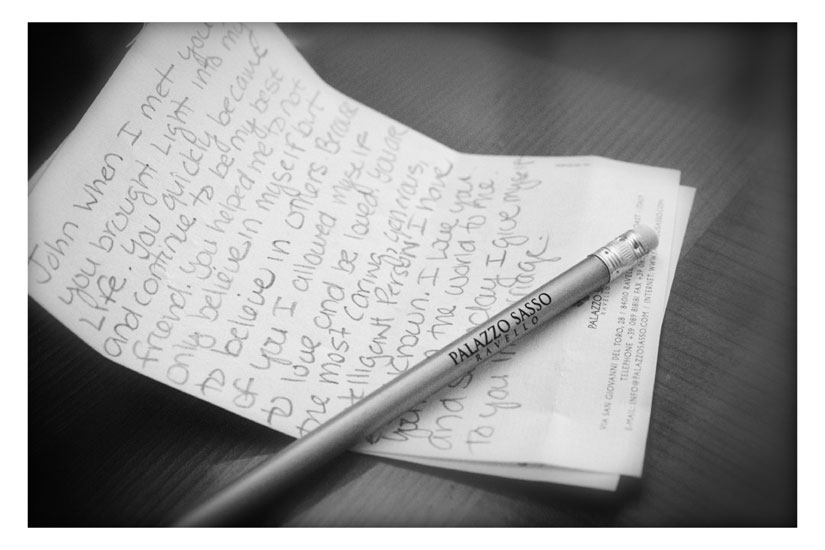 John when I met you
you brought light into my
Life. You quickly became
and continue to be my best
friend. You helped me to not
only believe in myself but
to believe in others. Because
of you I allowed myself
to love and be loved. You are
the most caring, generous,
telligent Person I have
known. I love you
the world to me.
day I give myself
to you in
PALAZZO SASSO
RAVELLO
PALAZZO
VIA SAN GIOVANNI DEL TORO, 28 / 84010
TELEPHONE +39 089 8181 FAX +39
E-MAIL: INFO@PALAZZOSASSO.COM / INTERNET: WWW